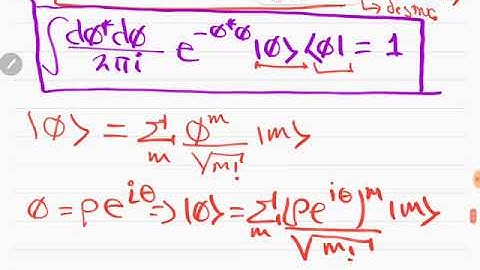 ↳ desmo
∫ dφ*dφ/2πi e^{-φ*φ} |φ⟩⟨φ| = 1
|φ⟩ = Σ_m φ^m/√m! |m⟩
φ = ρe^{iθ} ⇒ |φ⟩ = Σ_m (ρe^{iθ})^m/√m! |m⟩